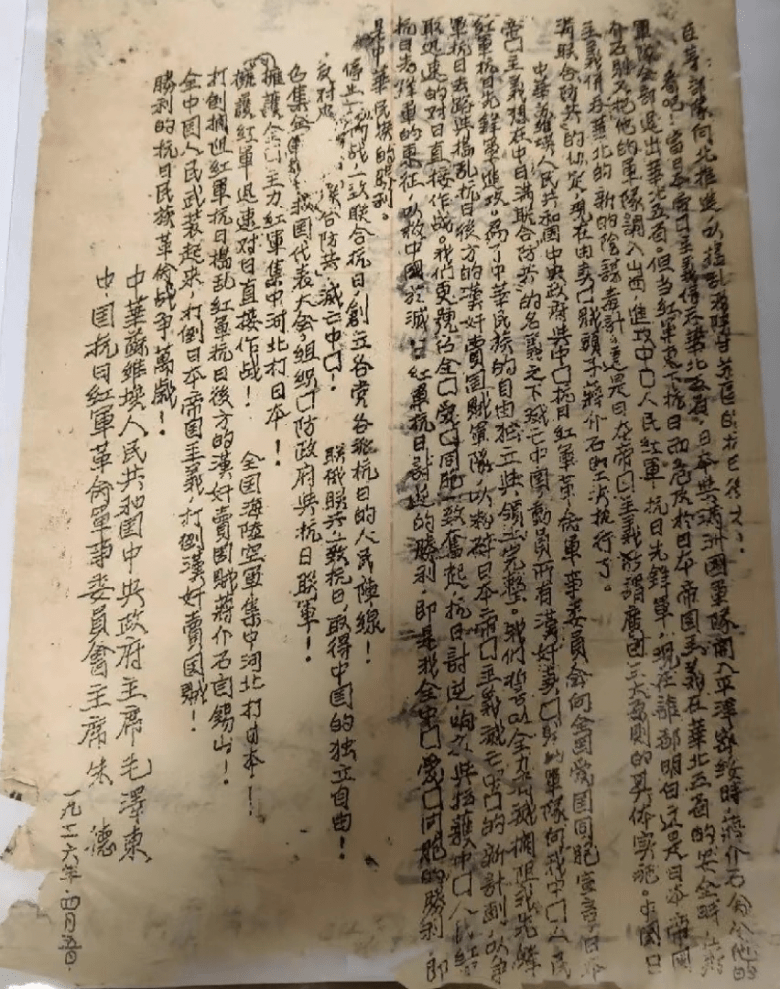 自等部隊向北推進，以擾亂陝甘蘇區的抗日後方！
看吧！當日本帝国主義併吞華北五省，日本與满洲国軍隊開入平津察綏時，蔣介石命令他的
軍隊全部退出華北五省。但当紅軍東下抗日而危及於日本帝国主義在華北五省的安全時，蔣
介石則又把他的軍隊調入山西，進攻中囗人民紅軍抗日先鋒軍，現在誰都明白這是日本帝国
主義併吞華北的新的陰謀毒計，這是日本帝囗主義所謂廣田三大原則的具体实施。中國日
满联合防共的協定，現在由卖囗贼頭子蔣介石的手来执行了。
中華苏維埃人民共和国中央政府與中囗抗日紅軍革命軍事委員会向全國愛国同胞宣言：日本
帝囗主義想在中日满联合防共的名義之下滅亡中国，動員所有漢奸卖囗贼的軍隊向我中囗人民
紅軍抗日先鋒軍進攻。為了中華民族的自由独立與領土完整。我們誓以全力消滅擱阻我先鋒
軍抗日去路與搗乱抗日後方的漢奸賣国賊軍隊，以粉碎日本帝囗主義滅亡中囗的新計劃，以争
取迅速的对日直接作战。我們更號召全囗愛囗同胞一致奮起，抗日討逆，响应與拥護中囗人民紅軍
抗日先鋒軍的東征，以救中國於滅亡。紅軍抗日討逆的勝利，即是我全中囗愛囗同胞的勝利，即
是中華民族的勝利。
停止一切内战，一致联合抗日，創立各党各派抗日的人民陣線！
反对 联合防共，滅亡中囗！ 联俄联共，一致抗日，取得中国的独立自由！
召集全 救国代表大会，組織囗防政府與抗日联軍！
擁護全囗主力紅軍集中河北打日本！ 全国海陸空軍集中河北打日本！
擁護紅軍迅速对日直接作战！
打倒擱阻紅軍抗日搗乱紅軍抗日後方的漢奸賣国贼蔣介石閻錫山！
全中国人民武装起来，打倒日本帝国主義，打倒漢奸賣囗贼！
勝利的抗日民族革命战争萬歲！
中華蘇維埃人民共和囯中央政府主席毛澤東
中囯抗日紅軍革命軍事委員會主席朱 德
一九三六年·四月五日·